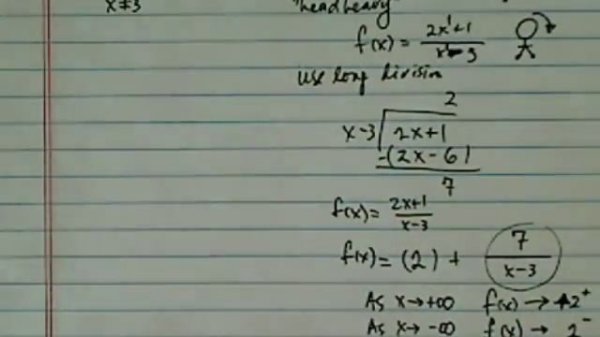 x≠3
"head heavy"
f(x) = 2x¹+1 / x¹-3
use long division
2
x-3 2x+1
-(2x-6)
7
f(x) = 2x+1 / x-3
f(x) = (2) + 7 / x-3
As x→+∞ f(x)→2⁺
As x→-∞ f(x)→ 2⁻